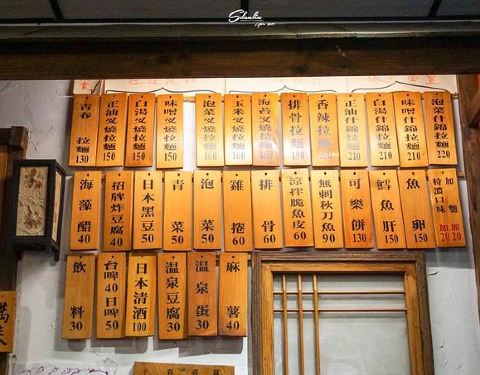 青春拉麵130
正油叉燒拉麵150
白湯叉燒拉麵150
味噌叉燒拉麵150
泡菜叉燒拉麵160
玉米叉燒拉麵160
海苔叉燒拉麵160
排骨拉麵190
香辣拉麵200
正油什錦拉麵210
白湯什錦拉麵210
味噌什錦拉麵210
泡菜什錦拉麵220
海藻醋40
招牌炸豆腐40
日本黑豆50
青菜50
泡菜50
雞捲60
排骨60
涼拌脆魚皮60
無刺秋刀魚90
可樂餅130
鱈魚肝150
魚卵150
加麵加20
特濃口味加20
飲料30
台啤40
日啤50
日本清酒100
溫泉豆腐30
溫泉蛋30
麻薯40